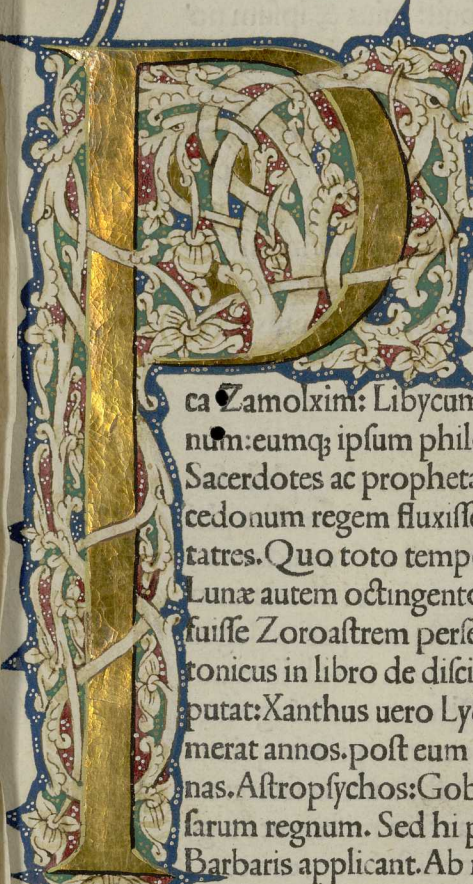 P
ca Zamolxim: Libycum
num:eumqꝫ ipſum phil
Sacerdotes ac propheta
cedonum regem fluxiſſe
tatres. Quo toto temp
Lunæ autem octingento
fuiſſe Zoroaſtrem perſe
tonicus in libro de diſci
putat:Xanthus uero Ly
merat annos.poſt eum
nas.Aſtropſychos:Gob
ſarum regnum. Sed hi p
Barbaris applicant.Ab